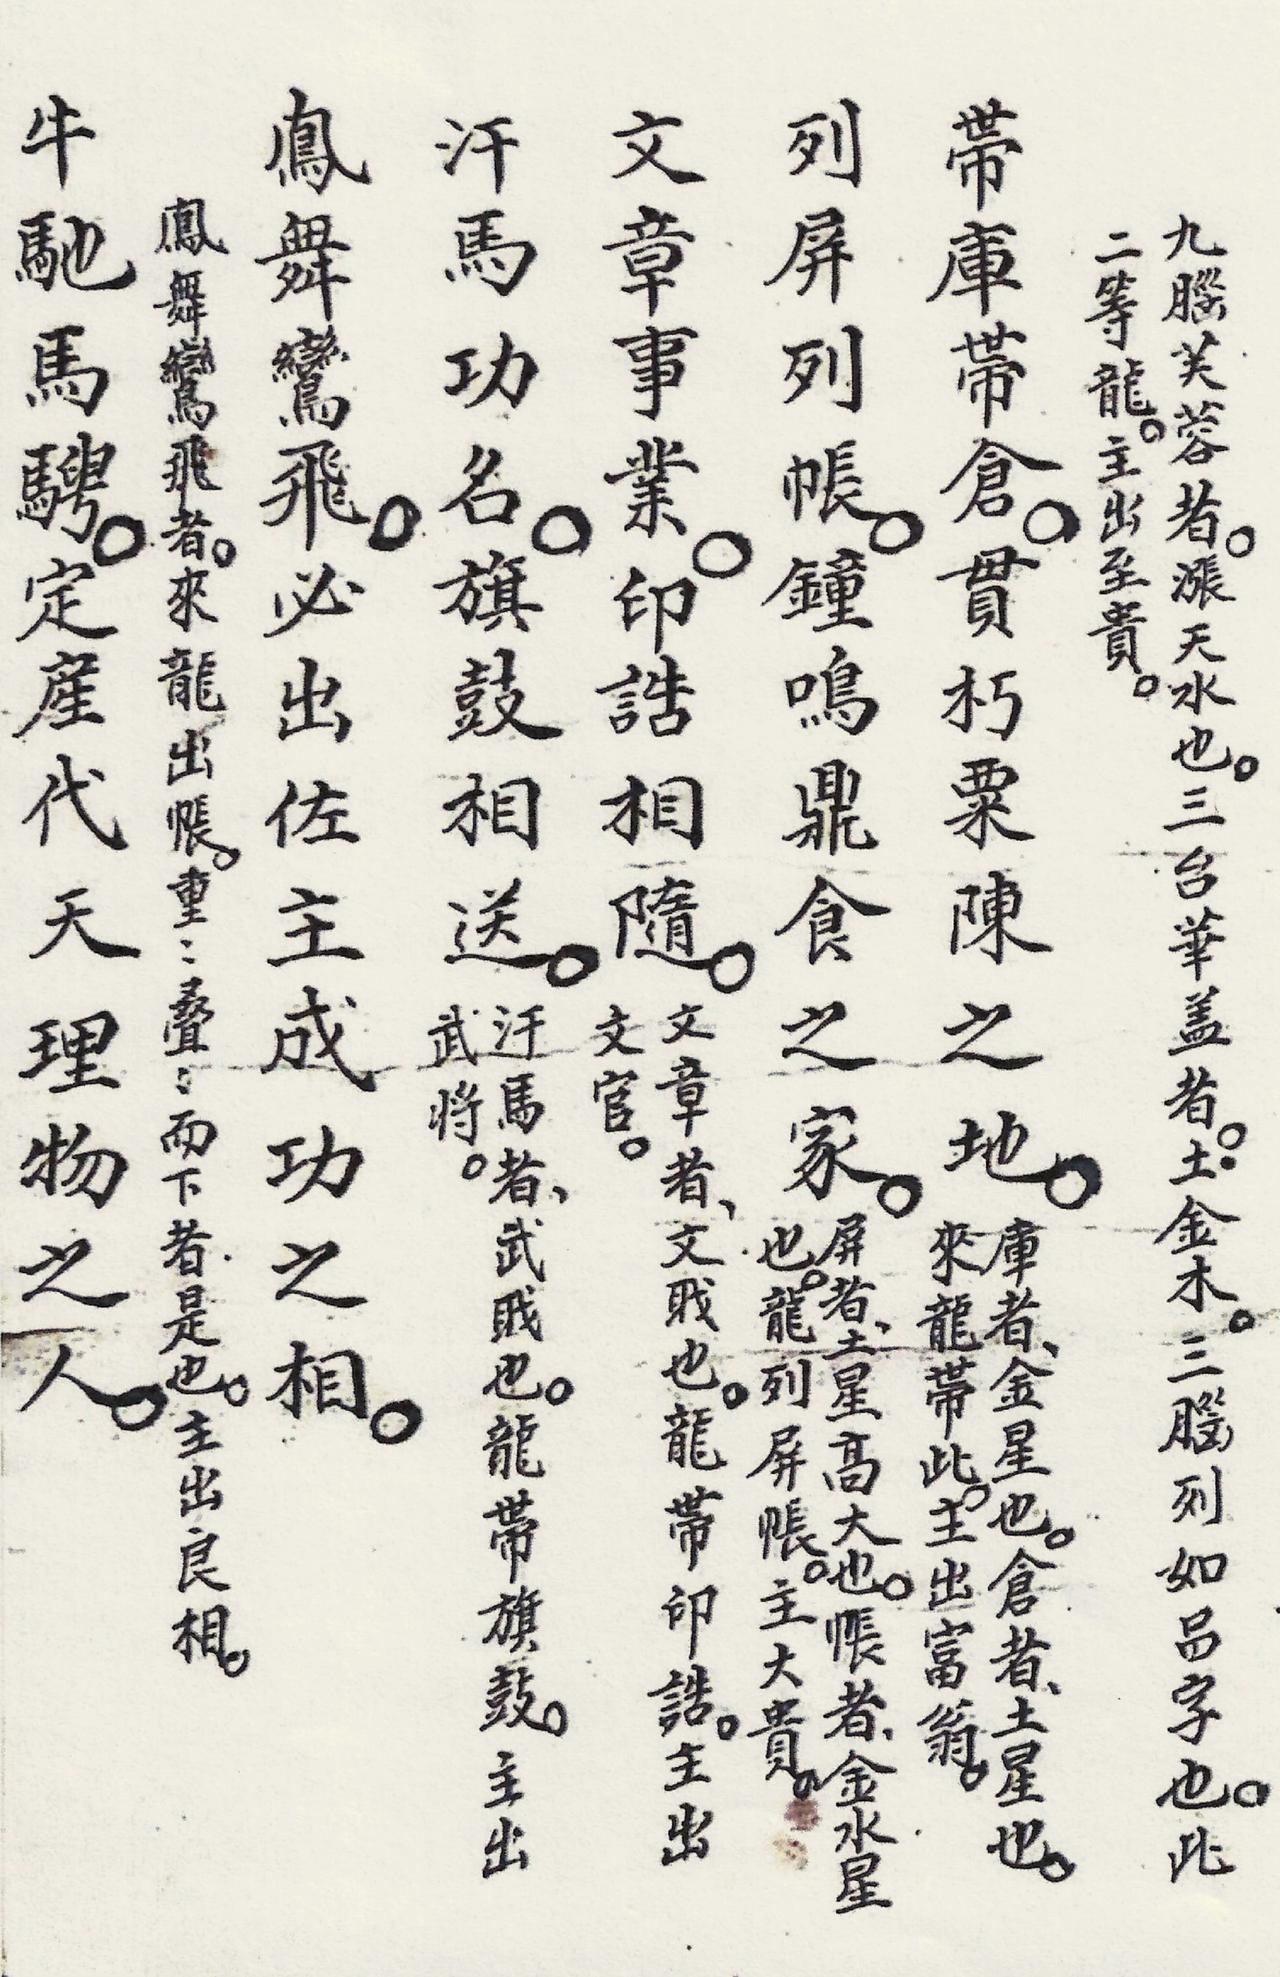 九腦芙蓉者。漲天水也。三台華盖者。土金木。三腦列如品字也。此
二等龍。主出至貴。
帶庫帶倉。貫朽粟陳之地。
庫者、金星也。倉者、土星也。
來龍帶此。主出富翁。
列屏列帳。鐘鳴鼎食之家。
屏者、土星高大也。帳者、金水星
也。龍列屏帳。主大貴。
文章事業。印誥相隨。
文章者、文戝也。龍帶印誥。主出
文官。
汗馬功名。旗鼓相送。
汗馬者、武戝也。龍帶旗鼓。主出
武将。
鳳舞鸞飛。必出佐主成功之相。
鳳舞鸞飛者。來龍出帳。重:叠:而下者是也。主出良相。
牛馳馬騁。定産代天理物之人。